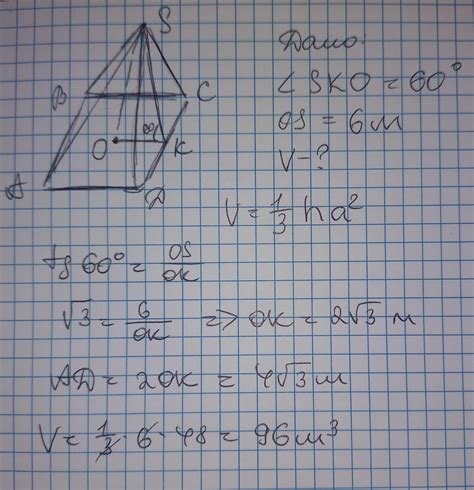 S
B
C
60°
O
K
A
D
Дано:
∠SKO = 60°
OS = 6м
V - ?
V = 1/3 ha²
tg 60° = OS/OK
√3 = 6/OK => OK = 2√3 м
AD = 2OK = 4√3 м
V = 1/3 · 6 · 48 = 96 м³